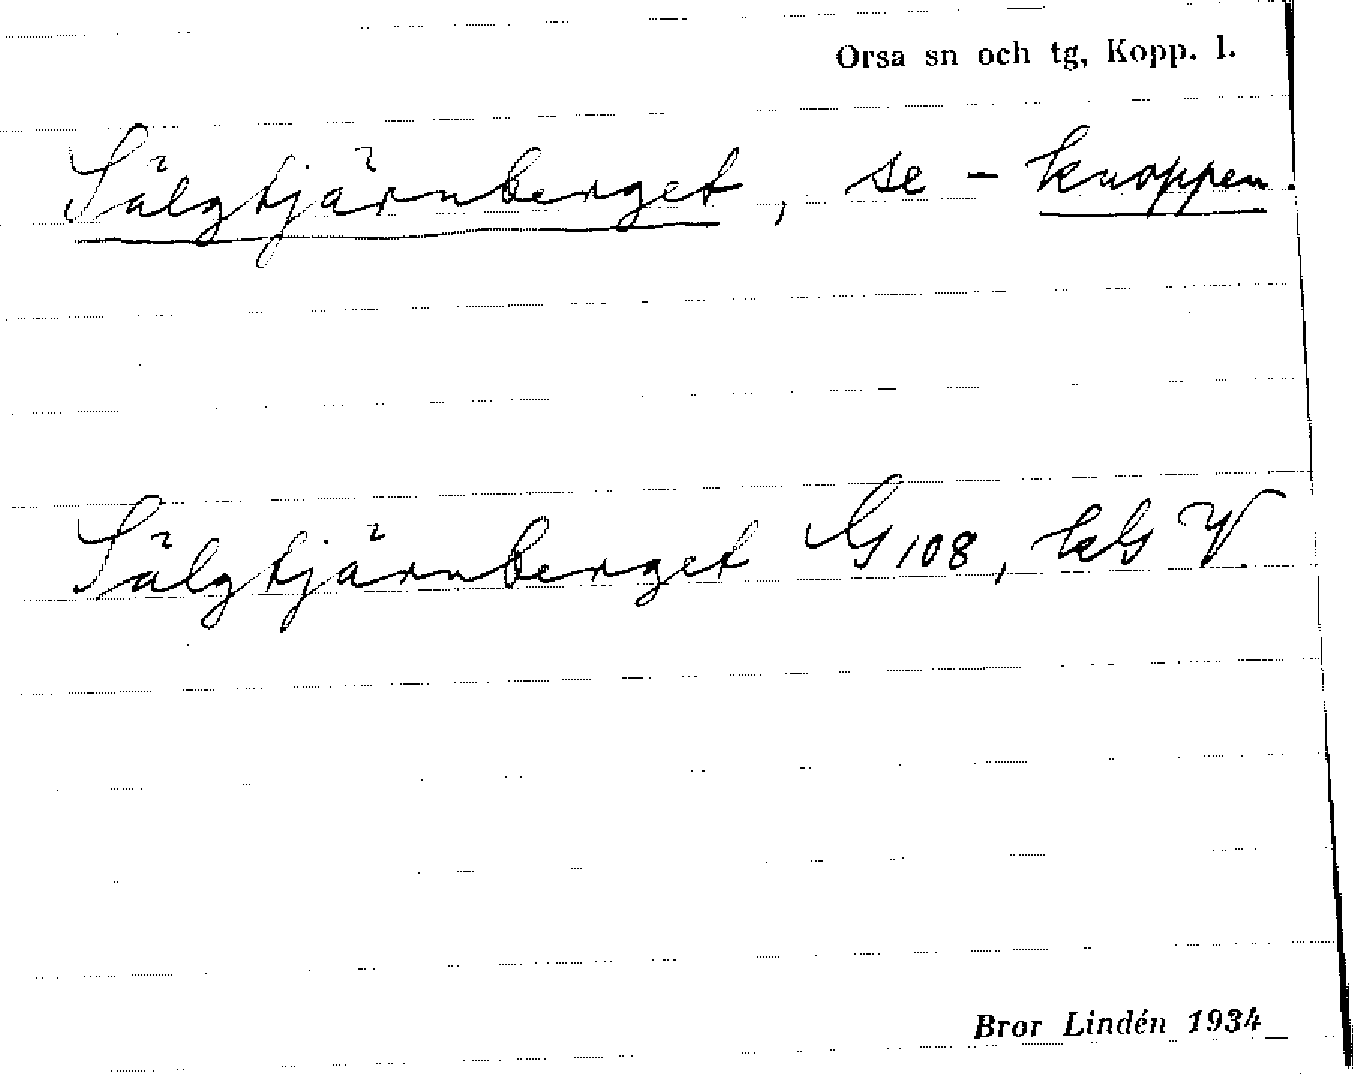 Orsa sn och tg, Kopp. l.
Sälgtjärnberget, se - knoppen.
Sälgtjärnberget G 108, kG V.
Bror Lindén 1934